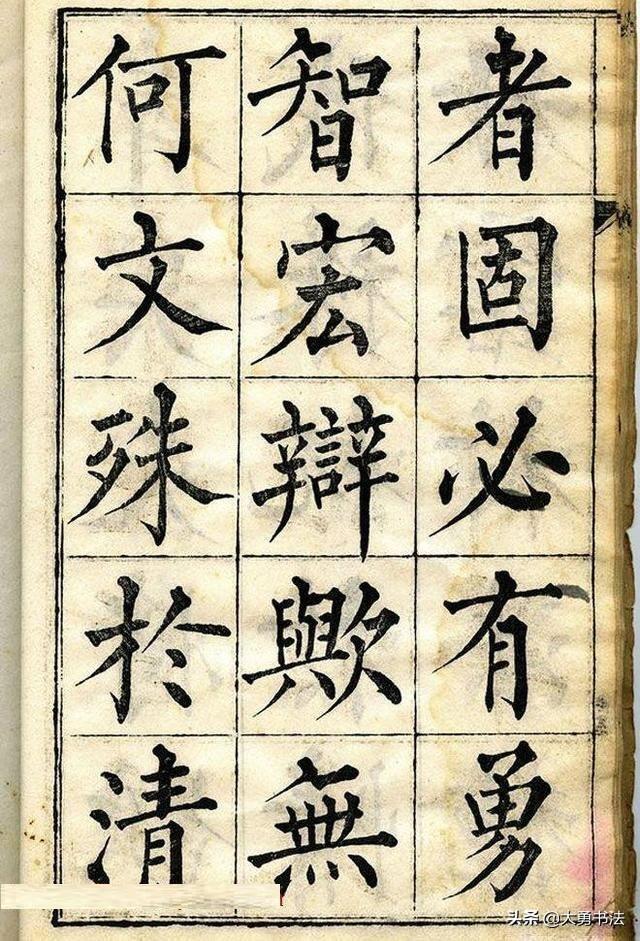 者固必有勇
智宏辯歟無
何文殊於清
头条@大勇书法